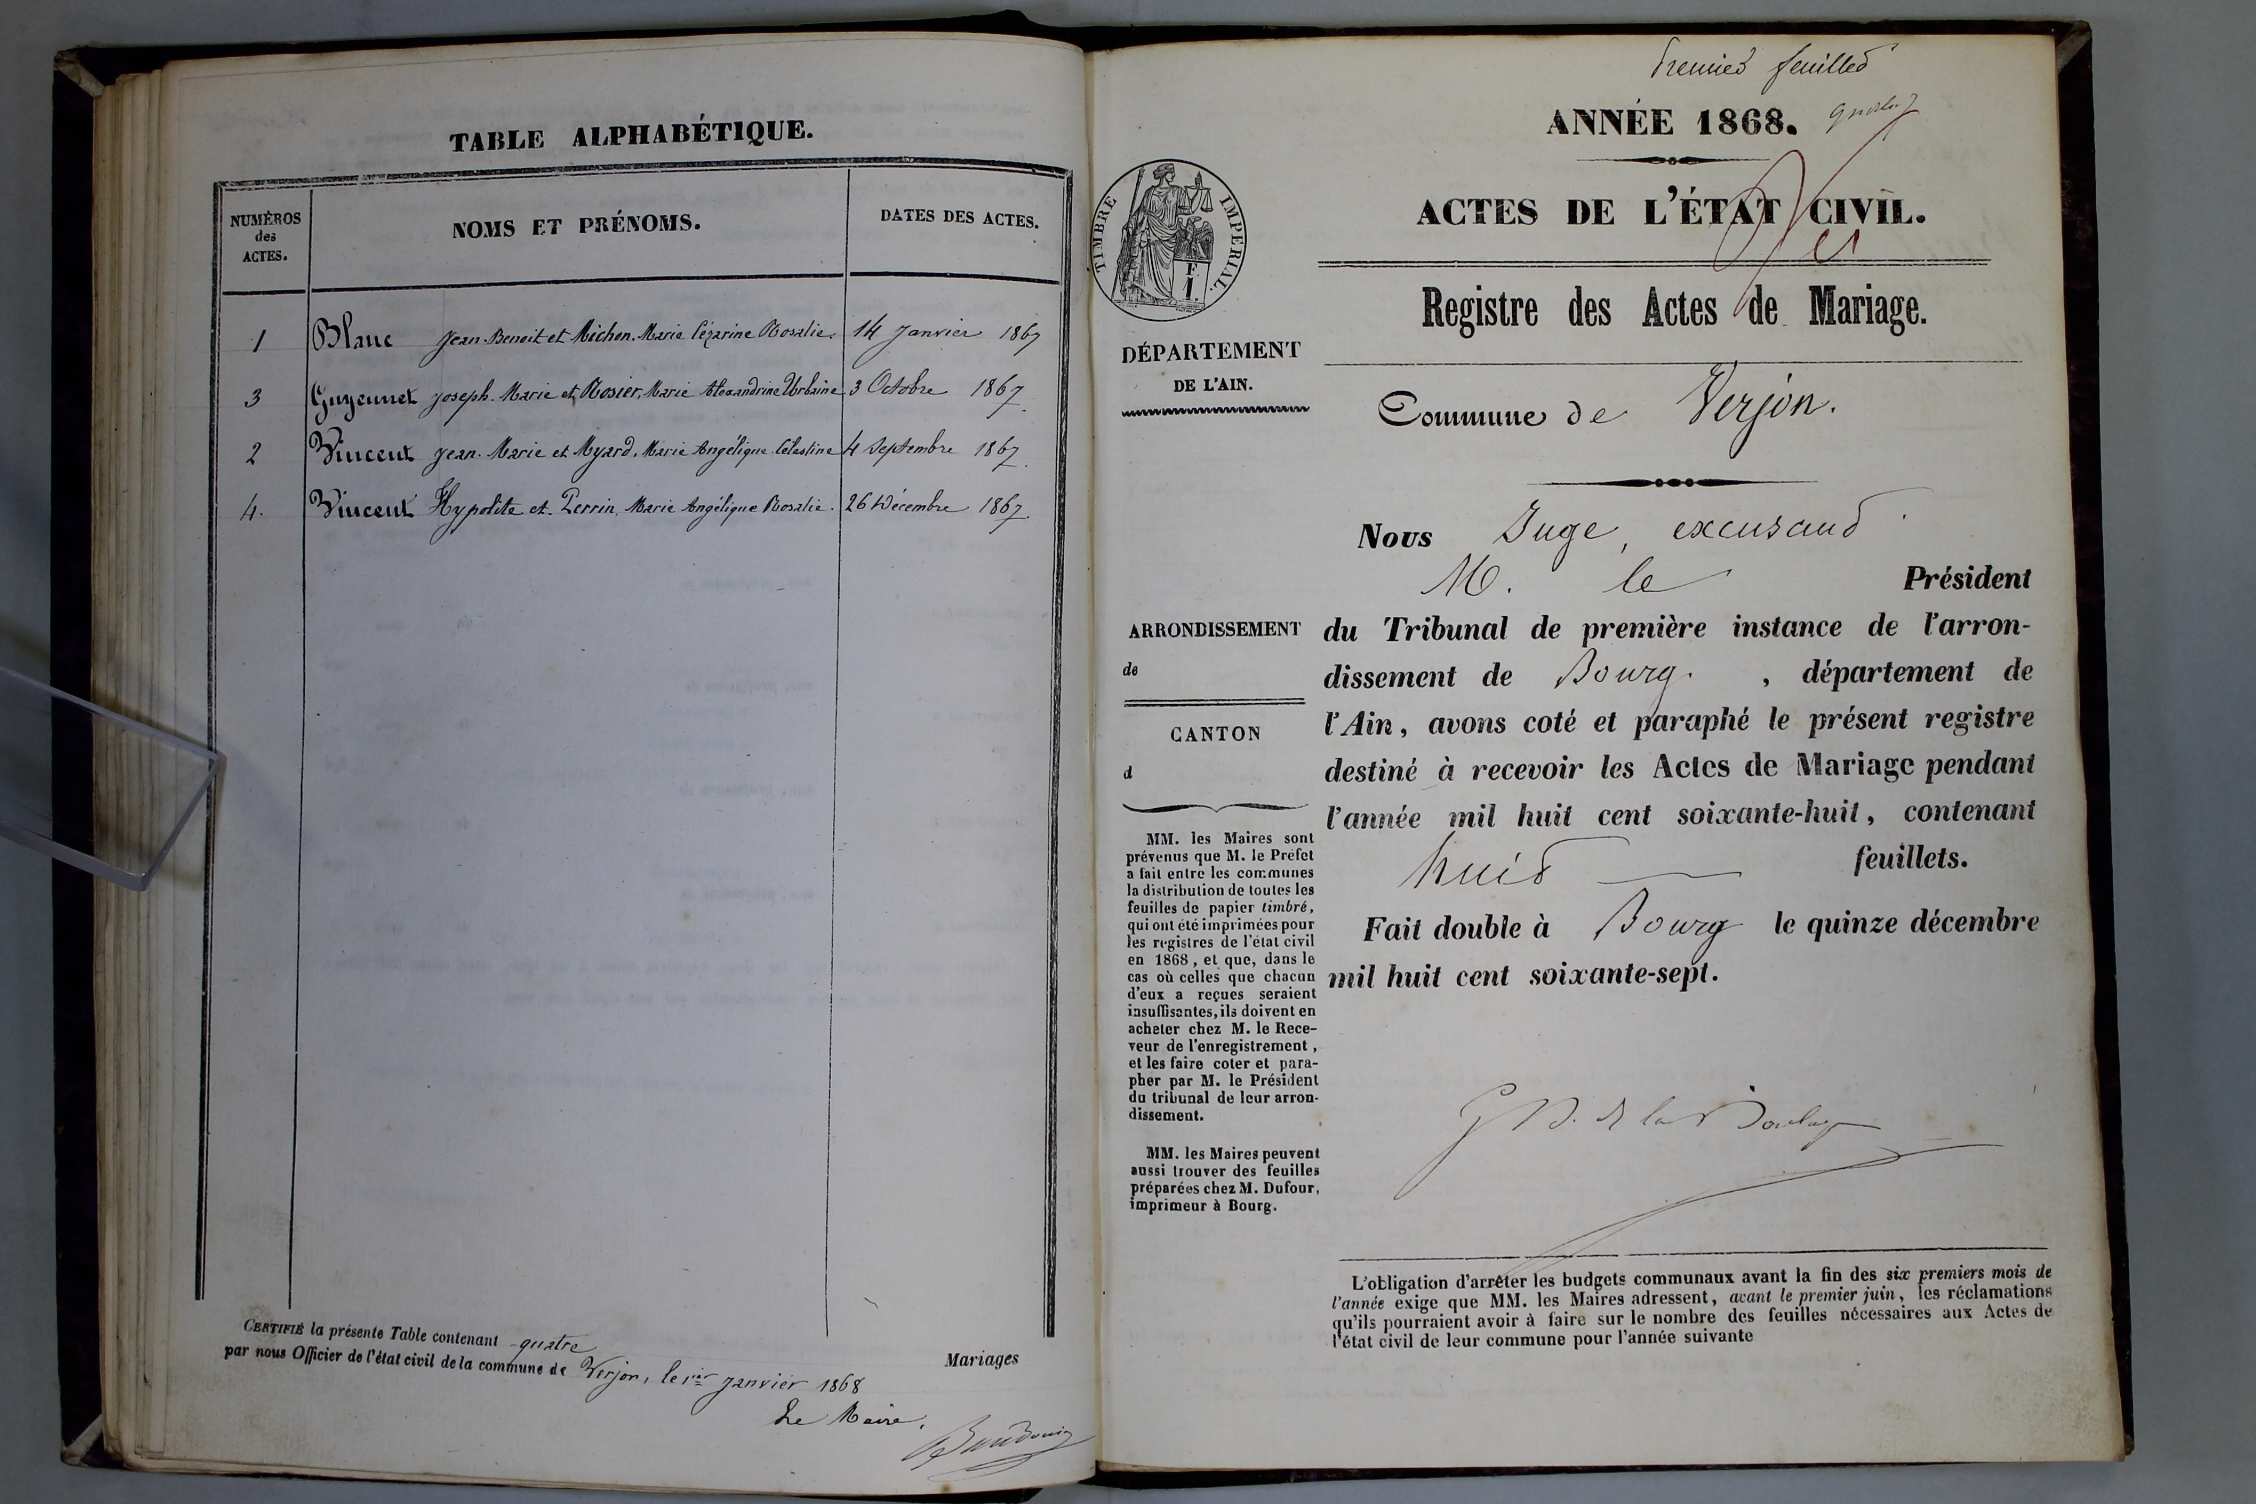 TABLE ALPHABÉTIQUE.
NUMÉROS des ACTES.
NOMS ET PRÉNOMS.
DATES DES ACTES.
1 Blanc Jean-Benoit et Michon, Marie Cézarine Rosalie. 14 Janvier 1867
3 Guyennet Joseph-Marie et Rosier, Marie Alexandrine Urbaine 3 Octobre 1867.
2 Vincent Jean-Marie et Myard, Marie Angélique Célestine 4 Septembre 1867.
4. Vincent Hypolite et Perrin, Marie Angélique Rosalie. 26 Décembre 1867.
CERTIFIÉ la présente Table contenant quatre Mariages
par nous Officier de l'état civil de la commune de Verjon, le 1er Janvier 1868
Le Maire,
Premier feuillet
ANNÉE 1868.
ACTES DE L'ÉTAT CIVIL.
Registre des Actes de Mariage.
TIMBRE IMPERIAL.
DÉPARTEMENT
DE L'AIN.
Commune de Verjon.
Nous Juge, excusant
M. le Président
du Tribunal de première instance de l'arron-
dissement de Bourg. , département de
l'Ain, avons coté et paraphé le présent registre
destiné à recevoir les Actes de Mariage pendant
l'année mil huit cent soixante-huit, contenant
huit feuillets.
Fait double à Bourg le quinze décembre
mil huit cent soixante-sept.
ARRONDISSEMENT
de
CANTON
d
MM. les Maires sont
prévenus que M. le Préfet
a fait entre les communes
la distribution de toutes les
feuilles de papier timbré,
qui ont été imprimées pour
les registres de l'état civil
en 1868, et que, dans le
cas où celles que chacun
d'eux a reçues seraient
insuffisantes, ils doivent en
acheter chez M. le Rece-
veur de l'enregistrement,
et les faire coter et para-
pher par M. le Président
du tribunal de leur arron-
dissement.
MM. les Maires peuvent
aussi trouver des feuilles
préparées chez M. Dufour,
imprimeur à Bourg.
L'obligation d'arrêter les budgets communaux avant la fin des six premiers mois de
l'année exige que MM. les Maires adressent, avant le premier juin, les réclamations
qu'ils pourraient avoir à faire sur le nombre des feuilles nécessaires aux Actes de
l'état civil de leur commune pour l'année suivante